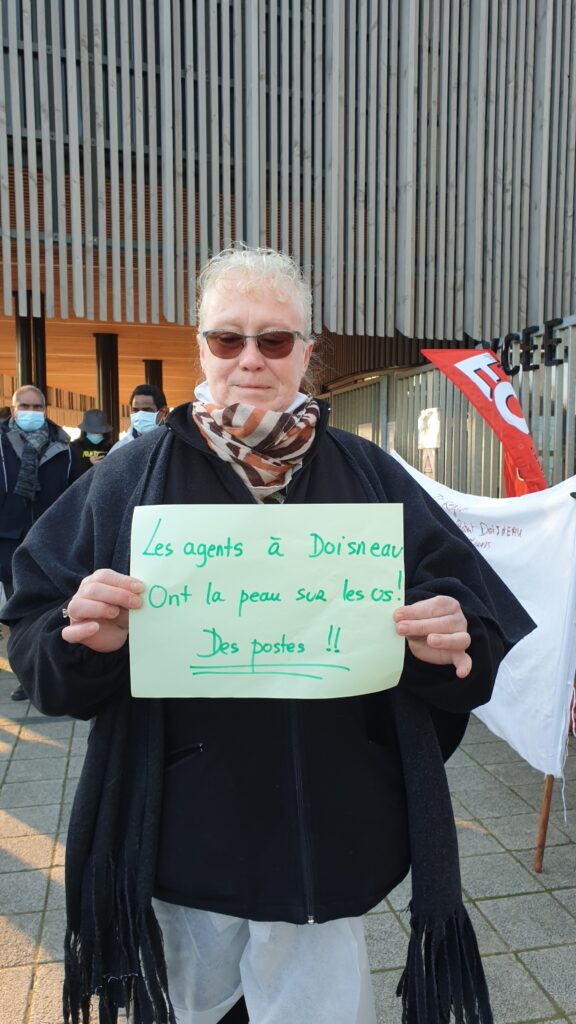 Les agents à Doisneau
Ont la peau sur les os!
Des postes !!
DOISNEAU